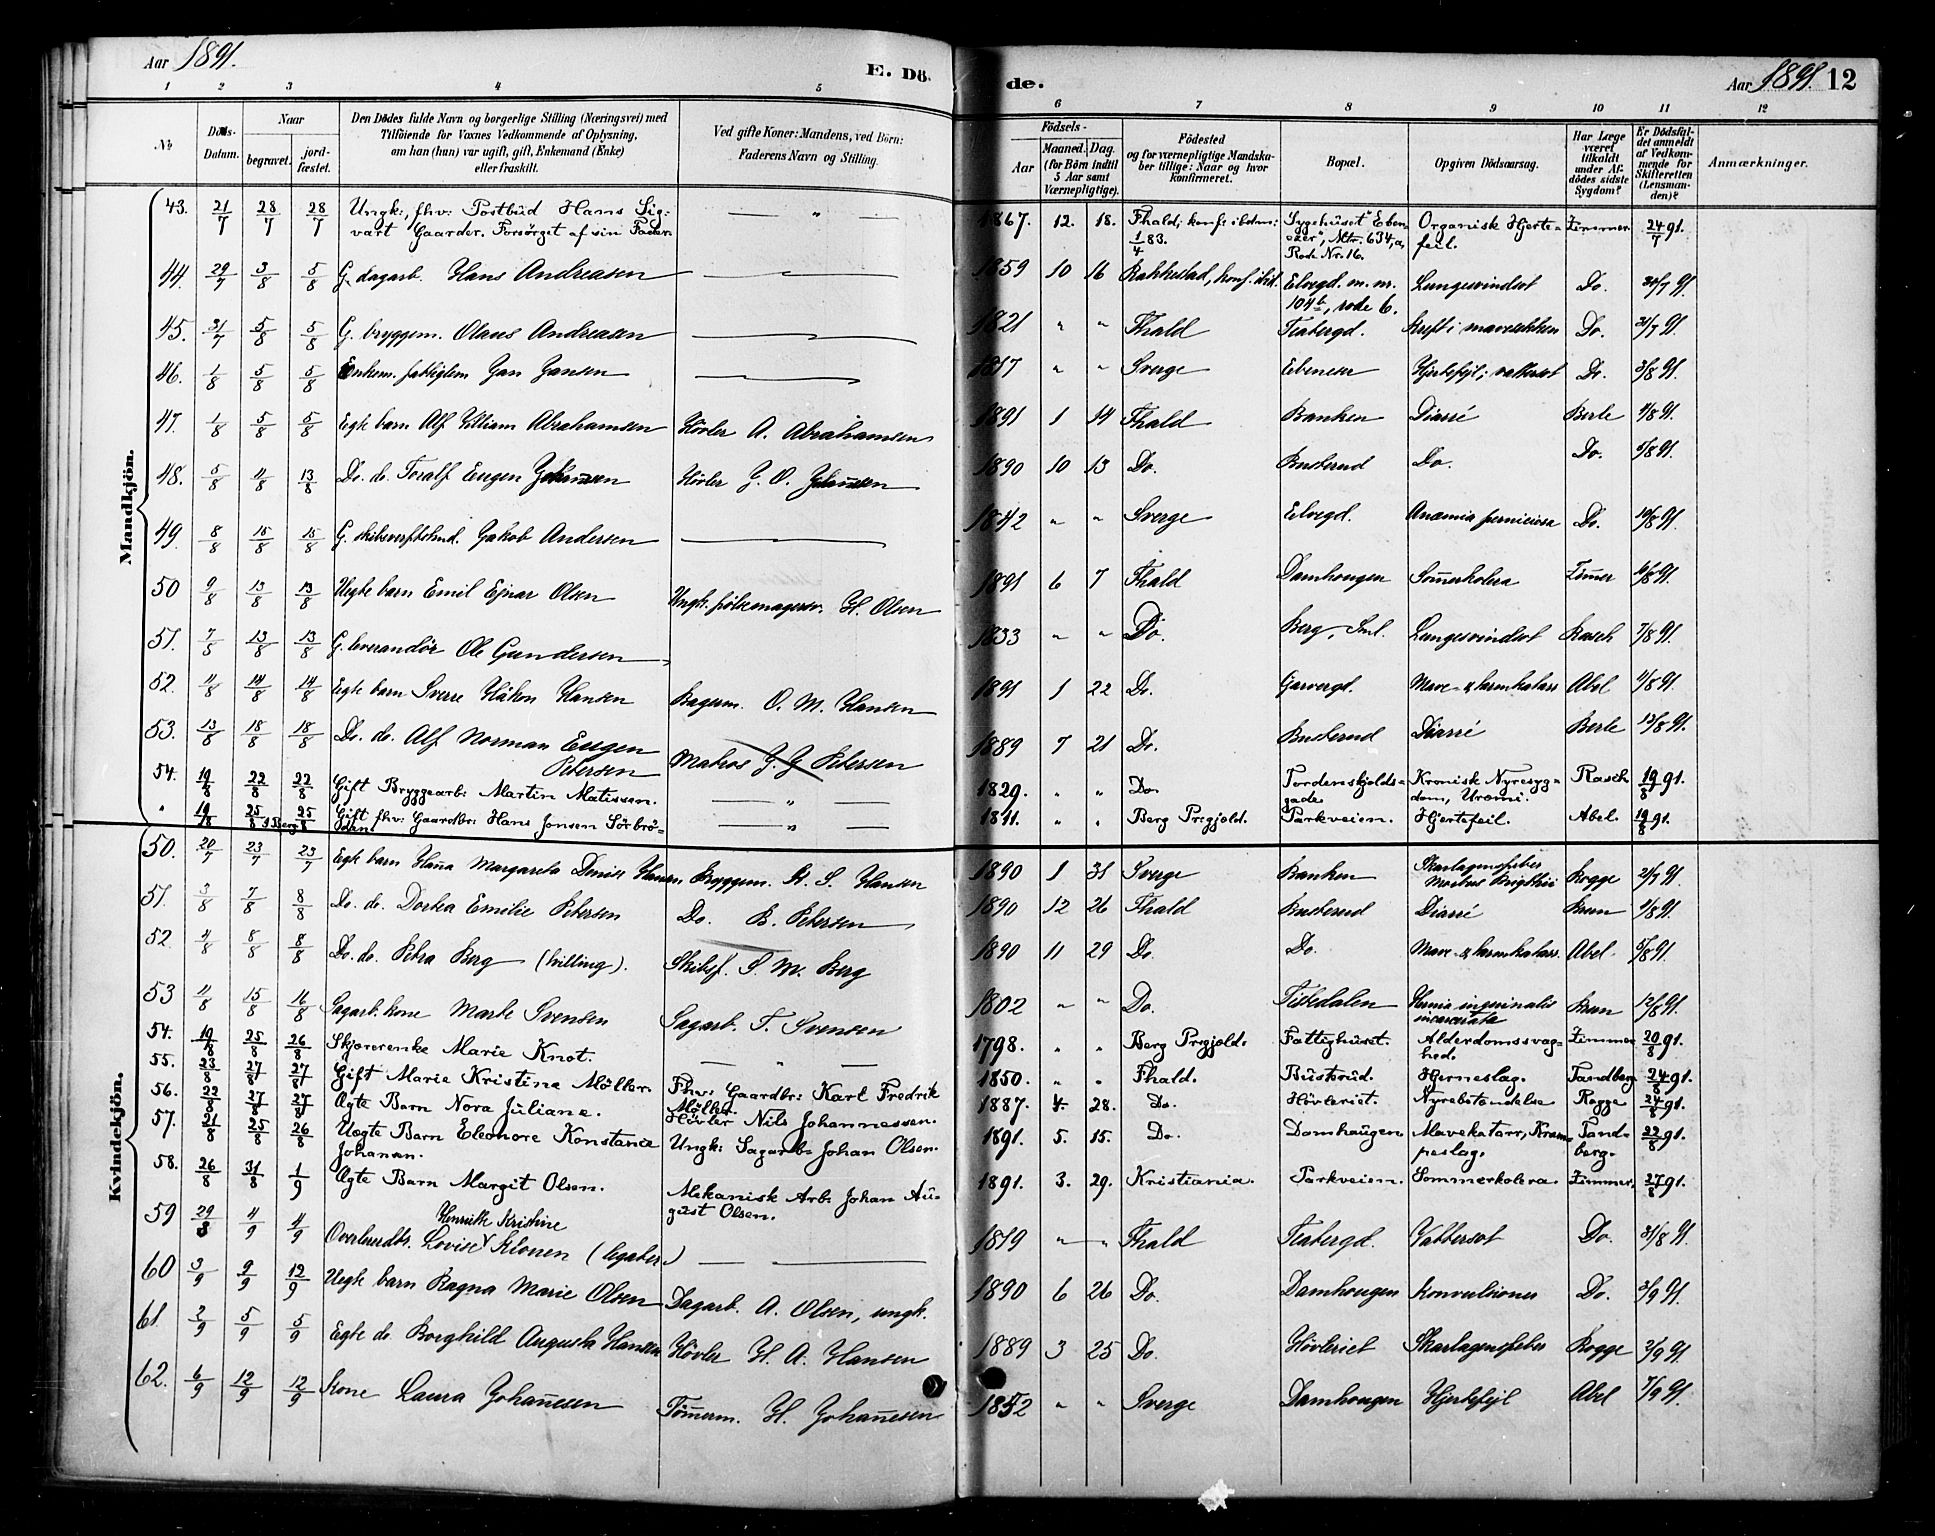 Aar 1891.
E. Dö-
de.
Aar 1891. 12
1 2 3 4 5 6 7 8 9 10 11 12
№
Døds-Datum.
Naar
begravet.
jord-fæstet.
Den Dødes fulde Navn og borgerlige Stilling (Næringsvei) med
Tilføiende for Voxnes Vedkommende af Oplysning,
om han (hun) var ugift, gift, Enkemand (Enke)
eller fraskilt.
Ved gifte Koner: Mandens, ved Börn:
Faderens Navn og Stilling.
Födsels-
Aar
Maaned. Dag.
(for Börn indtil
5 Aar samt
Værnepligtige).
Födested
og for værnepligtige Mandska-
ber tillige: Naar og hvor
konfirmeret.
Bopæl.
Opgiven Dödsaarsag.
Har Læge
været
tilkaldt
under Af-
dödes sidste
Sygdom?
Er Dödsfal-
det anmeldt
af Vedkom-
mende for
Skifteretten
(Lensman-
den)?
Anmærkninger.
Mandkjön.
43. 21/7 28/7 28/7 Ungk:, fhv: Postbüd Hans Sig- — „ — 1867. 12. 18. Fhald, konf: ibdm: Sygehüset "Eben- Organisk Hjerte- Zimmer. 24/7 91.
vart Gaarder. Forsörget af sin Fader. 1/4 83. ezer", Mtr. 634,a, feil.
Rode Nr. 16.
44. 29/7 3/8 5/8 G. dagarb. Hans Andreasen — 1859 10 16 Rakkestad, konf. ibid. Elvegd. m. nr. Lungesvindsot Do. 30/7 91.
104b, rode 6.
45. 31/7 5/8 5/8 G. bryggem. Olaus Andreasen — 1821 " " Fhald Teatergd. Kreft i mavesekken Do. 31/7 91.
46. 1/8 5/8 5/8 Enkem. fattiglem Jan Jansen — 1817 " " Sverge Ebeneser Hjertefejl; vattersot Do. 3/8 91.
47. 1/8 5/8 5/8 Egte barn Alf Villiam Abrahamsen Hövler A. Abrahamsen 1891 1 14 Fhald Banken Diarré Berle 4/8 91.
48. 5/8 11/8 13/8 Do. do. Toralf Eugen Johansen Hövler J. O. Johansen 1890 10 13 Do. Busterud Do. Do. 5/8 91.
49. 8/8 15/8 15/8 G. skibsverftstmd. Jakob Andersen — 1842 " " Sverge Elvegd. Anæmia perniciosa Do. 10/8 91.
50 9/8 13/8 13/8 Uegte barn Emil Ejnar Olsen Ungk. pölsemagersv. H. Olsen 1891 6 7 Fhald Damhougen Sommerkolera Zimmer 11/8 91.
51. 7/5 13/8 13/8 G. leverandör Ole Gundersen 1833 " " Do. Berg, Sml. Lungesvindsot Rasch 7/8 91.
52. 11/8 14/8 14/8 Egte barn Sverre Håkon Hansen Bagerm. O. M. Hansen 1891 1 22 Do. Garvergd. Mave- & tarmkatarr Abel 11/8 91.
53. 13/8 18/8 18/8 Do. do. Alf Norman Eugen
Petersen Matros J. J. Petersen 1889 7 21 Do. Busterud Diarré Berle 13/8 91.
54. 19/8 22/8 22/8 Gift Bryggearb: Martin Matissen. — „ — 1829. " " Do. Tordenskjolds- Kronisk Nyresyg- Rasch 19/8 91.
gade. dom, Uræmi.
" 19/8 25/8 i Berg 25/8 Gift fhv: Gaardbr: Hans Jonsen Sörbrö- — „ — 1811. " " Berg Prgjeld. Parkveien. Hjertefeil. Abel. 19/8 91.
den
Kvindekjön.
50. 20/7 23/7 23/7 Egte barn Hanna Margareta Denise Hansen Bryggem. H. S. Hansen 1890 1 31 Sverge Banken Skarlagensfeber
Morbus Brigthii Rogge 21/7 91.
51. 3/8 7/8 8/8 Do. do. Dortea Emilie Petersen Do. B. Petersen 1890 12 26 Fhald Busterud Diarré Brun 4/8 91.
52. 4/8 8/8 8/8 Do. do. Petra Berg (tvilling). Skibsf. S. M. Berg 1890 11 29 Do. Do. Mave- & tarmkatarr. Abel 5/8 91.
53 11/8 15/8 16/8 Sagarb. kone Marte Svensen Sagarb. T. Svensen 1802 " " Do. Tistedalen Hernia inguinalis
incarcerata Brun 12/8 91.
54. 19/8 25/8 26/8 Skjærerenke Marie Knot. — „ — 1798. " " Berg Prgjeld. Fattighüset. Alderdomssvag- Zimmer 20/8 91.
hed.
55. 23/8 27/8 27/8 Gift Marie Kristine Möller. Fhv: Gaardbr: Karl Fredrik
Möller. 1850. " " Fhald. Büsterüd. Hjerneslag. Tandberg 24/8 91.
56. 22/8 27/8 27/8 Ægte Barn Nora Jüliane. Hövler Nils Johannessen. 1887. 4. 28. Do. Hövleriet. Nyrebetændelse Rogge 24/8 91.
57. 21/8 25/8 26/8 Uægte Barn Eleonore Konstanse
Johansen. Ungk: Sagarb: Johan Olsen. 1891. 5. 15. Do. Damhaügen Mavekatarr, Kram- Tand- 22/8 91.
peslag. berg.
58. 26/8 31/8 1/9 Ægte Barn Margit Olsen. Mekanisk Arb: Johan Au-
güst Olsen. 1891. 3. 29. Kristiania. Parkveien. Sommerkolera. Zimmer. 27/8 91.
59 29/8 4/9 4/9 Overlærerdtr. Lovise Henriette Kristine Klouen (legater) — 1819 " " Fhald Teatergd. Vattersot Do. 31/8 91.
60 3/9 9/9 12/9 Uegte barn Ragna Marie Olsen Dagarb. A. Olsen, ungk. 1890 6 26 Do. Damhougen Konvulsioner Do. 3/9 91.
61. 2/9 5/9 5/9 Egte do. Borghild Augusta Hansen Hövler H. A. Hansen 1889 3 25 Do. Hövleriet Skarlagensfeber Rogge 2/9 91.
62. 6/9 12/9 12/9 Kone Laura Johannesen Tömmerm. H. Johannesen 1852 " " Sverge Damhougen Hjertefejl Abel 7/9 91.